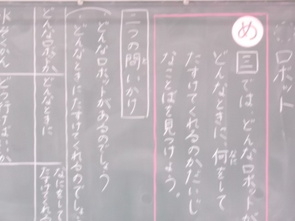 ロボット
め
三では、どんなロボットが
どんなときに、何をして
たすけてくれるのかだいじ
なことばを見つけよう。
二つの問いかけ
どんなロボットがあるのでしょう
どんなときにたすけてくれるのでしょ
どんなロボットか
どんなときに
なにをして
たすけてくれ